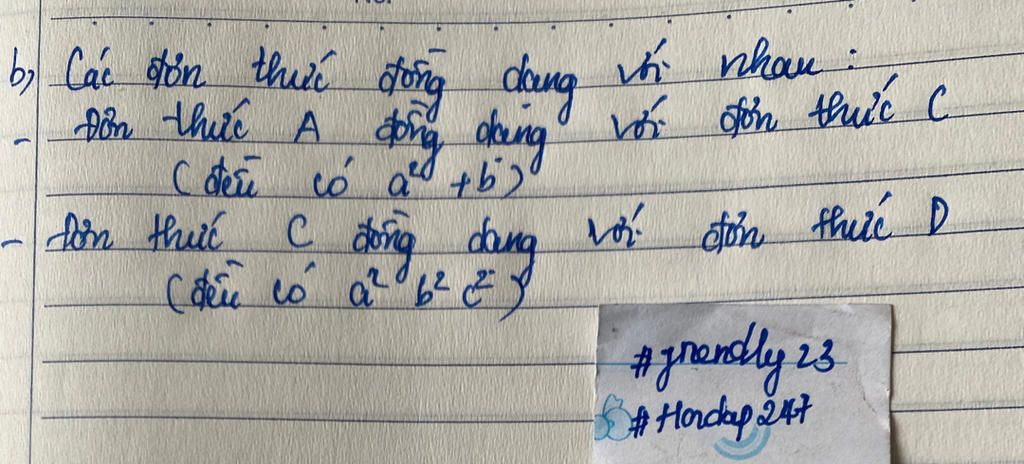 b, Các đơn thức đồng dạng với nhau :
- Đơn thức A đồng dạng với đơn thức C
(đều có a² + b)
- Đơn thức C đồng dạng với đơn thức D
(đều có a² b² c²)
#friendly23
#Hoidap247